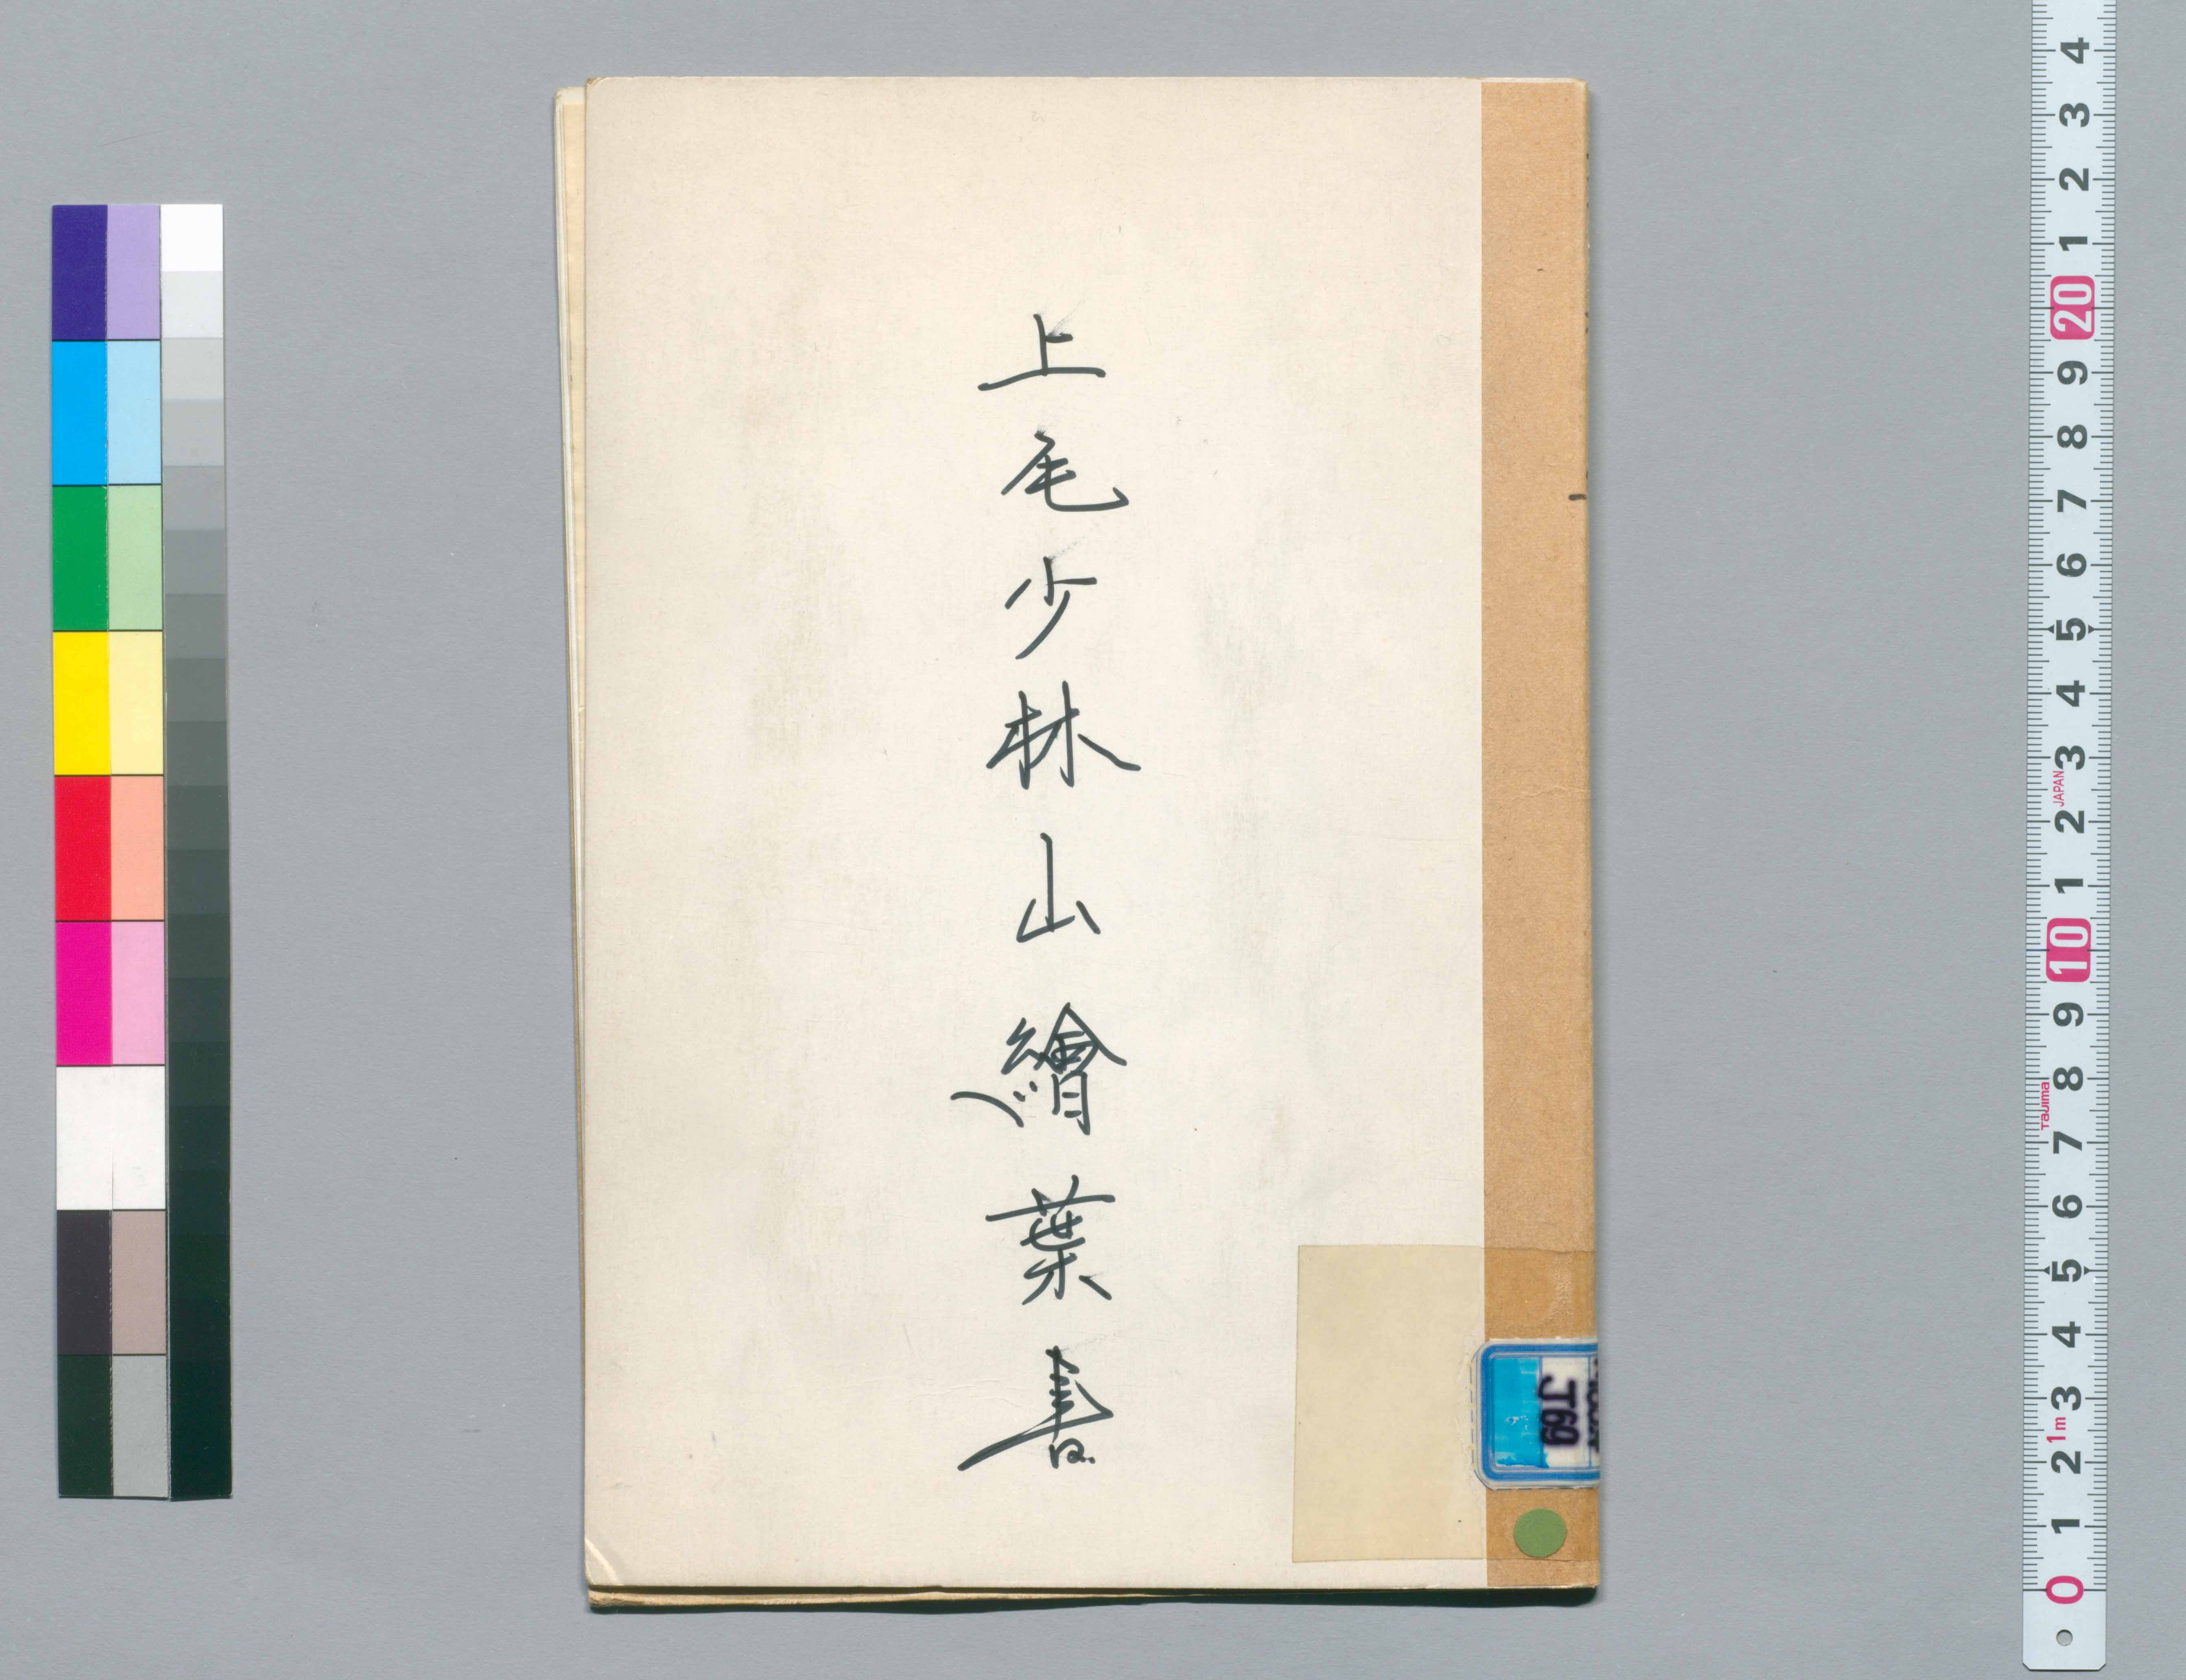 上尾少林山繪葉書
J69
4 3 2 1 20 9 8 7 6 5 4 3 2 1 10 9 8 7 6 5 4 3 2 1 0
JAPAN
Tajima
1m